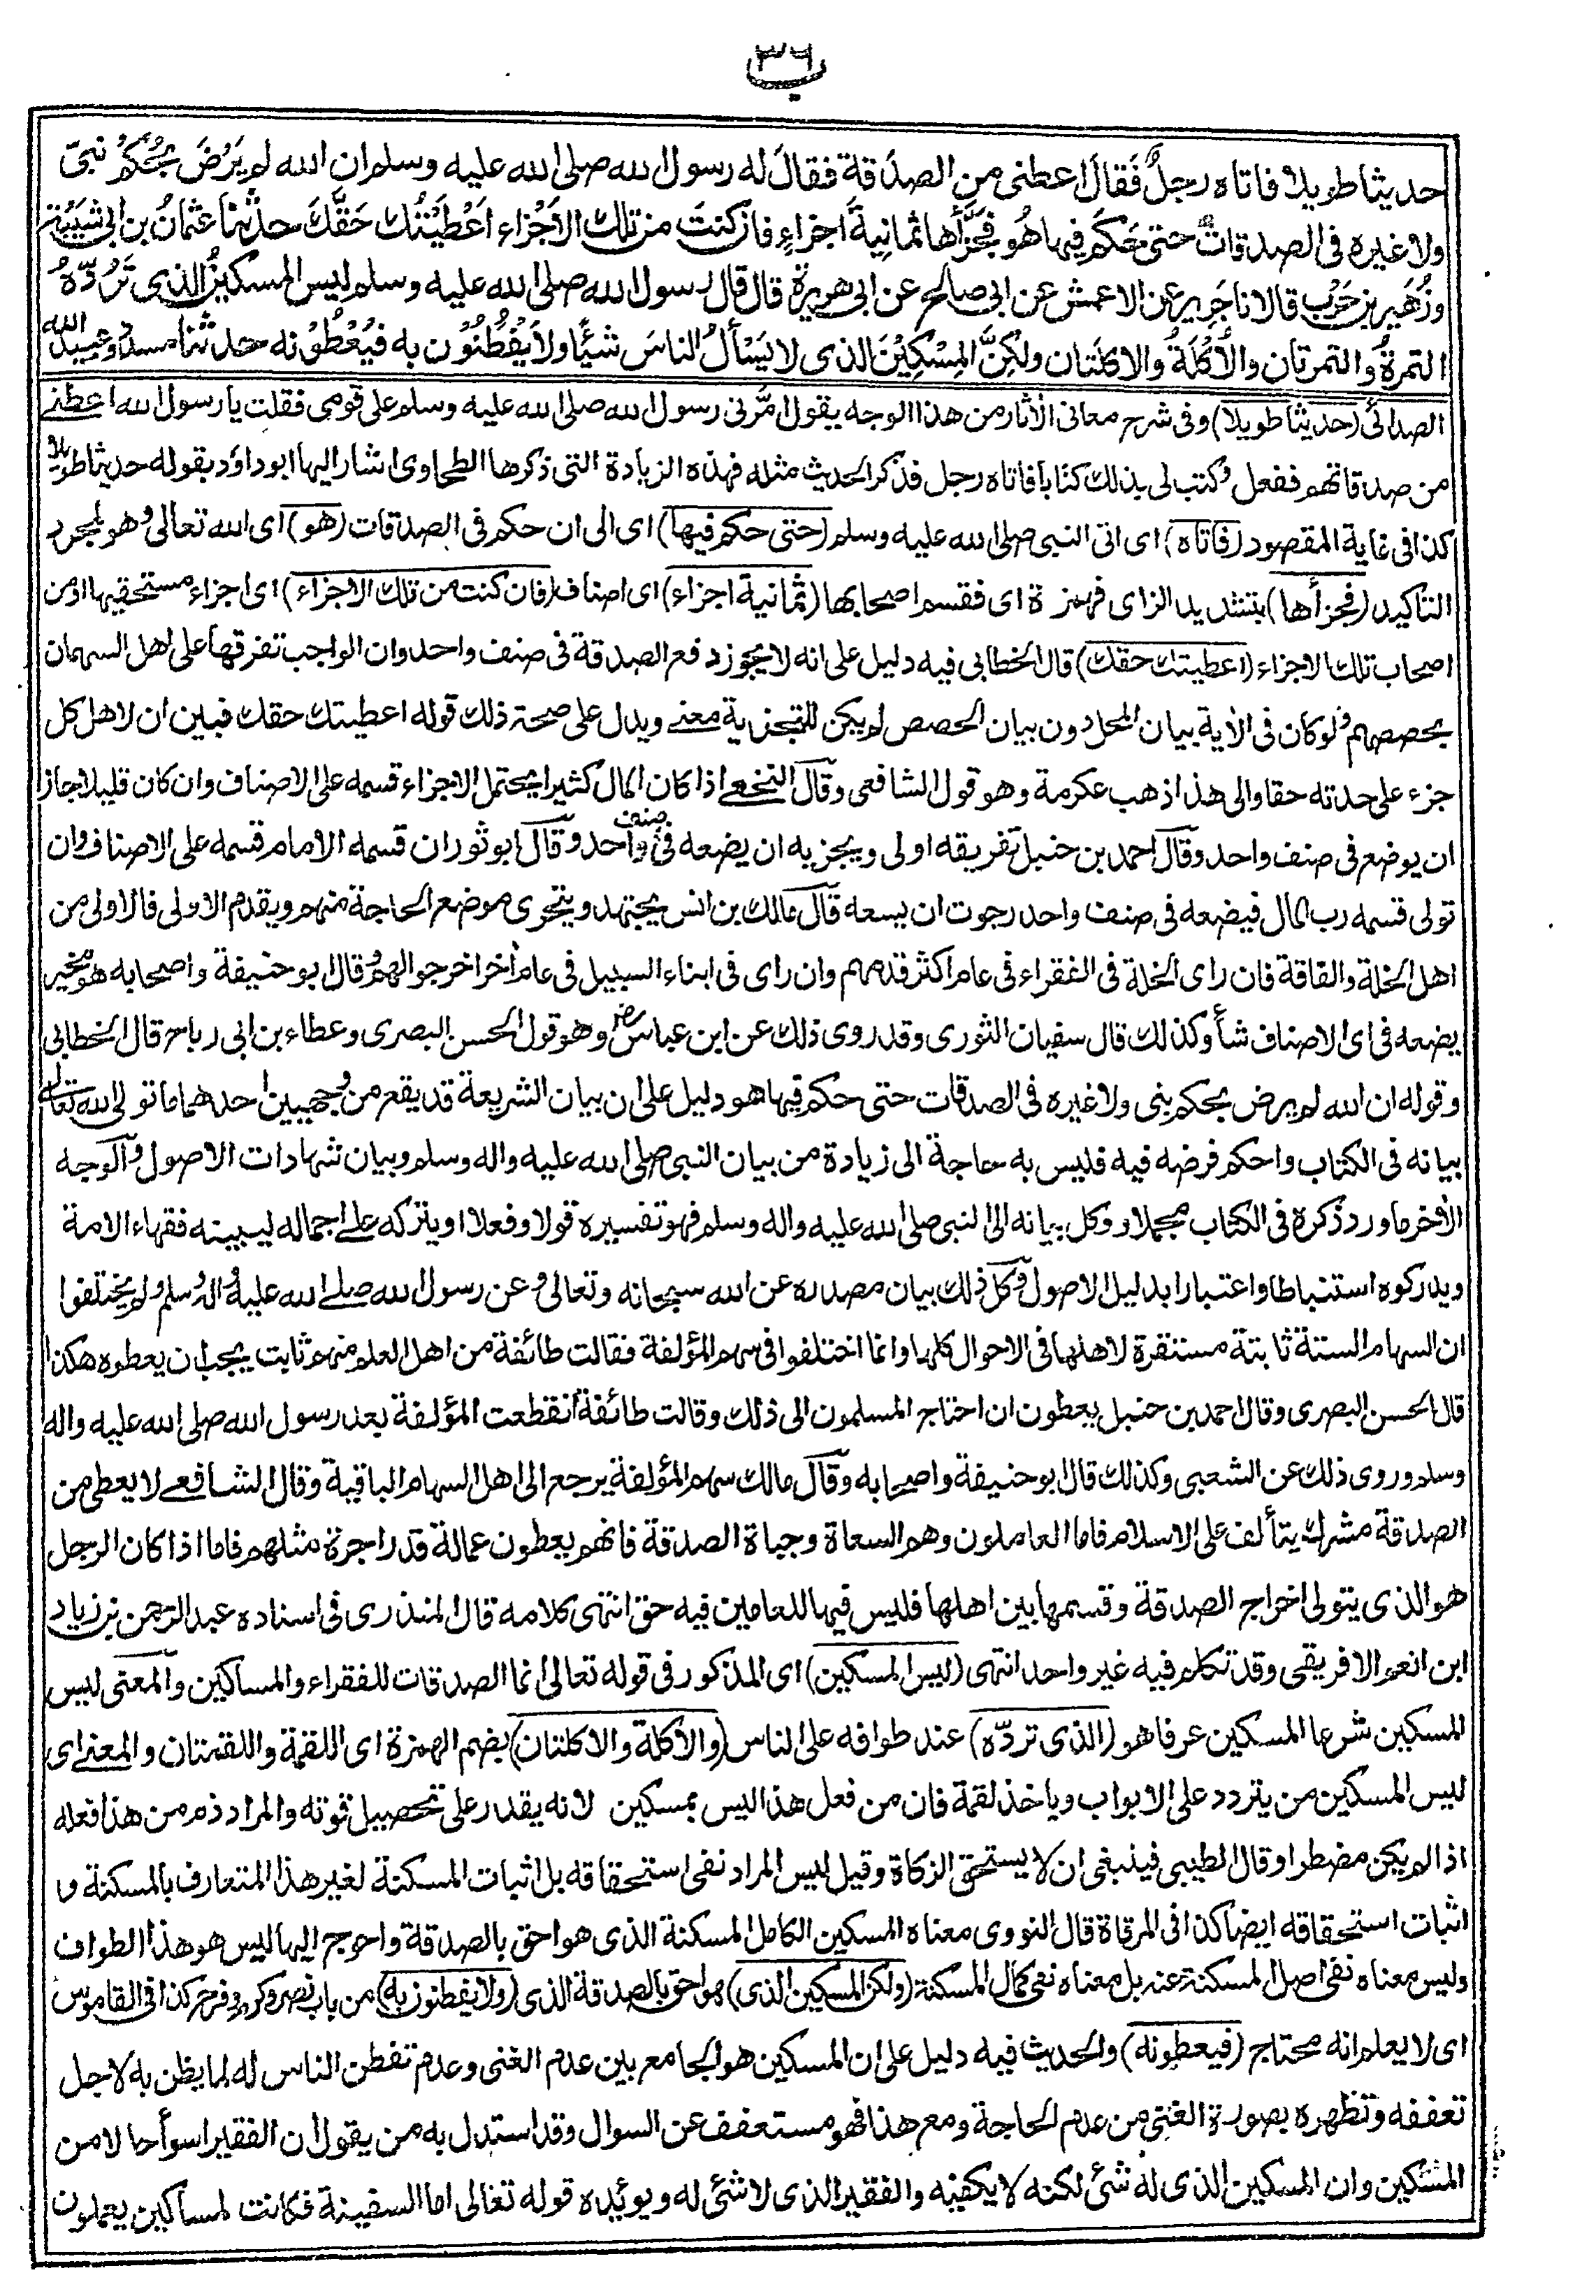 ٣٦
حديثا طويلا فاتاه رجلٌ فَقالَ اعطنى من الصدَقة فقالَ له رسول الله صلى الله عليه وسلم ان الله لم يَرْضَ بحُكْمِ نبىّ
ولا غيره فى الصدقاتِ حتى حَكَم فيها هُو فجَزَّأها ثمانيةَ اجزاءٍ فان كنتَ من تلك الاَجْزاء اَعْطَيْتُك حَقَّكَ حدثنا عثمانُ بن ابى شَيْبَة
وزُهَير بن حَرْب قالا نا جَرِير عن الاعمش عن ابى صالح عن ابى هريرة قال قال رسول الله صلى الله عليه وسلم ليس المسكينُ الذى تَرُدّهُ
التمرةُ والتمرتان والاُكْلَةُ والاكلتان ولكِنَّ المِسْكِيْنَ الذى لا يَسْأَلُ الناسَ شيئًا ولا يَفْطُنُوْن به فيُعْطُوْنه حدثنا مسددٌ وعبيد الله
الصدائى (حديثا طويلا) وفى شرح معانى الاٰثار من هذا الوجه يقول امّرنى رسول الله صلى الله عليه وسلم على قومى فقلت يا رسول الله اعطنى
من صدقاتهم ففعل وكتب لى بذلك كتابا فاتاه رجل فذكر الحديث مثله فهذه الزيادة التى ذكرها الطحاوى اشار اليها ابو داؤد بقوله حديثا طويلا
كذا فى غاية المقصود (فاتاه) اى اتى النبى صلى الله عليه وسلم (حتى حكم فيها) اى الى ان حكم فى الصدقات (هو) اى الله تعالى وهو لمجرد
التاكيد (فجزأها) بتشديد الزاى فهمزة اى فقسم اصحابها (ثمانية اجزاء) اى اصناف (فان كنت من تلك الاجزاء) اى اجزاء مستحقيها او من
اصحاب تلك الاجزاء (اعطيتك حقك) قال الخطابى فيه دليل على انه لا يجوز دفع الصدقة فى صنف واحد وان الواجب تفرقها على اهل السهمان
بحصصهم ولو كان فى الاٰية بيان المحل دون بيان الحصص لم يكن للتجزية معنى ويدل على صحة ذلك قوله اعطيتك حقك فبين ان لاهل كل
جزء على حدته حقا والى هذا ذهب عكرمة وهو قول الشافعى وقال النخعى اذا كان المال كثيرا يحتمل الاجزاء قسمه على الاصناف وان كان قليلا جاز
ان يوضع فى صنف واحد وقال احمد بن حنبل تفريقه اولى ويجزيه ان يضعه فى صنف واحد وقال ابو ثور ان قسمه الامام قسمه على الاصناف وان
تولى قسمه رب المال فيضعه فى صنف واحد رجوت ان يسعه قال مالك بن انس يجتهد ويتحرى موضع الحاجة منهم ويقدم الاولى فالاولى من
اهل الخلة والفاقة فان راى الخلة فى الفقراء فى عام اكثر قدمهم وان راى فى ابناء السبيل فى عام اٰخر اخرجو الهم وقال ابو حنيفة واصحابه هو مخير
يضعه فى اى الاصناف شأ وكذلك قال سفيان الثورى وقد روى ذلك عن ابن عباس رض وهو قول الحسن البصرى وعطاء بن ابى رباح قال الخطابى
وقوله ان الله لم يرض بحكم بنى ولا غيره فى الصدقات حتى حكم فيها هو دليل على ان بيان الشريعة قد يقع من وجهيين احدهما ما تولى الله تعالى
بيانه فى الكتاب واحكم فرضه فيه فليس به حاجة الى زيادة من بيان النبى صلى الله عليه واله وسلم وبيان شهادات الاصول والوجه
الاٰخر ما ورد ذكره فى الكتاب مجملا ووكل بيانه الى النبى صلى الله عليه واله وسلم فهو تفسيره قولا وفعلا او يتركه على اجماله ليبينه فقهاء الامة
ويدركوه استنباطا واعتبارا بدليل الاصول وكل ذلك بيان مصدره عن الله سبحانه وتعالى وعن رسول الله صلى الله عليه واله وسلم ولم يختلفوا
ان السهام الستة ثابتة مستقرة لاهلها فى الاحوال كلها وانما اختلفوا فى سهم المؤلفة فقالت طائفة من اهل العلم منهم ثابت يجب ان يعطوه هكذا
قال الحسن البصرى وقال احمد بن حنبل يعطون ان احتاج المسلمون الى ذلك وقالت طائفة انقطعت المؤلفة بعد رسول الله صلى الله عليه واله
وسلم وروى ذلك عن الشعبى وكذلك قال ابو حنيفة واصحابه وقال مالك سهم المؤلفة يرجع الى اهل السهام الباقية وقال الشافعى لا يعطى من
الصدقة مشرك يتألف على الاسلام فاما العاملون وهم السعاة وجباة الصدقة فانهم يعطون عمالة قدر اجرة مثلهم فاما اذا كان الرجل
هو الذى يتولى اخراج الصدقة وقسمها بين اهلها فليس فيها للعامين فيه حق انتهى كلامه قال المنذرى فى اسناده عبد الرحمن بن زياد
ابن انعم الافريقى وقد تكلم فيه غير واحد انتهى (ليس المسكين) اى المذكور فى قوله تعالى انما الصدقات للفقراء والمساكين والمعنى ليس
المسكين شرعا المسكين عرفا هو (الذى تردّه) عند طوافه على الناس (والاكلة والاكلتان) بضم الهمزة اى اللقمة واللقمتان والمعنى اى
ليس المسكين من يتردد على الابواب وياخذ لقمة فان من فعل هذا ليس بمسكين لانه يقدر على تحصيل قوته والمراد ذم من هذا فعله
اذا لم يكن مضطرا وقال الطيبى فينبغى ان لا يستحق الزكاة وقيل ليس المراد نفى استحقاقه بل اثبات المسكنة لغير هذا المتعارف بالمسكنة و
اثبات استحقاقه ايضا كذا فى المرقاة قال النووى معناه المسكين الكامل المسكنة الذى هو احق بالصدقة واحوج اليها ليس هو هذا الطواف
وليس معناه نفى اصل المسكنة عنه بل معناه نفى كمال المسكنة (ولكن المسكين الذى) هو احق بالصدقة الذى (ولا يفطنون به) من باب نصر وكرم وفرح كذا فى القاموس
اى لا يعلم انه محتاج (فيعطونه) والحديث فيه دليل على ان المسكين هو الجامع بين عدم الغنى وعدم تفطن الناس له لما يظن به لاجل
تعففه وتظهره بصورة الغنى من عدم الحاجة ومع هذا فهو مستعفف عن السوال وقد استدل به من يقول ان الفقير اسوأ حالا من
المسكين وان المسكين الذى له شئ لكنه لا يكفيه والفقير الذى لا شئ له ويويده قوله تعالى اما السفينة فكانت لمساكين يعملون